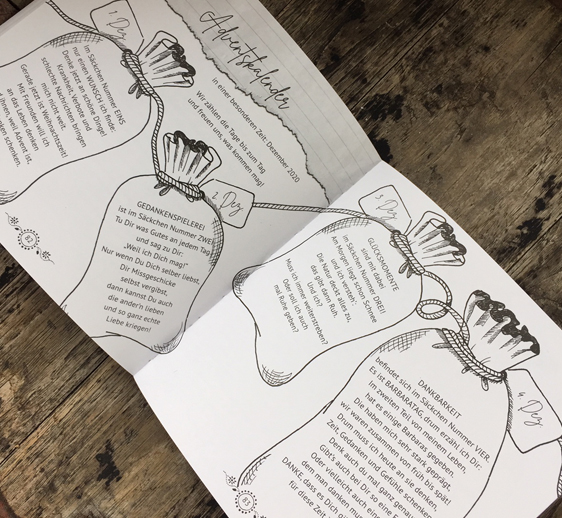 Adventskalender
in einer besonderen Zeit: Dezember 2020
Wir zählen die Tage bis zum Tag
und freuen uns, was kommen mag!
1. Dez
im Säckchen Nummer EINS
nur einen WUNSCH ich finde:
Denke jetzt an schöne Dinge!
Krankheit, Verbote und
schlechte Nachrichten bringen
mich nicht weit.
Gerade jetzt ist Weihnachtszeit!
Mit Freunden will ich
an das Leben denken
ihnen, weil Advent ist,
schenken.
82
2. Dez
GEDANKENSPIELEREI
ist im Säckchen Nummer ZWEI
Tu Dir was Gutes an jedem Tag
und sag zu Dir:
„Weil ich Dich mag!"
Nur wenn Du Dich selber liebst,
Dir Missgeschicke
selbst vergibst,
dann kannst Du auch
die ander'n lieben
und so ganz echte
Liebe kriegen!
3. Dez
GLÜCKSMOMENTE
und mit dabei
im Säckchen Nummer DREI!
Am Morgen liegt schon Schnee
und ich versteh':
Die Natur deckt alles zu,
das gibt dann Ruh'.
Und ich?
Muss ich immer weiterstreben?
Oder soll ich auch
mal Ruhe geben?
4. Dez
DANKBARKEIT
befindet sich im Säckchen Nummer VIER
Es ist BARBARATAG, drum erzähl ich Dir:
Im zweiten Teil von meinem Leben
hat es einige Barbaras gegeben.
Die haben mich sehr stark geprägt,
wir waren zusammen von früh bis spät!
Drum muss ich heute an sie denken,
Zeit, Gedanken und Gefühle schenken.
Denk auch du mal ganz genau
Gibt's auch bei Dir so eine
Oder vielleicht auch ein
dem man danken
DANKE, dass es Dich
für diese Zeit
83